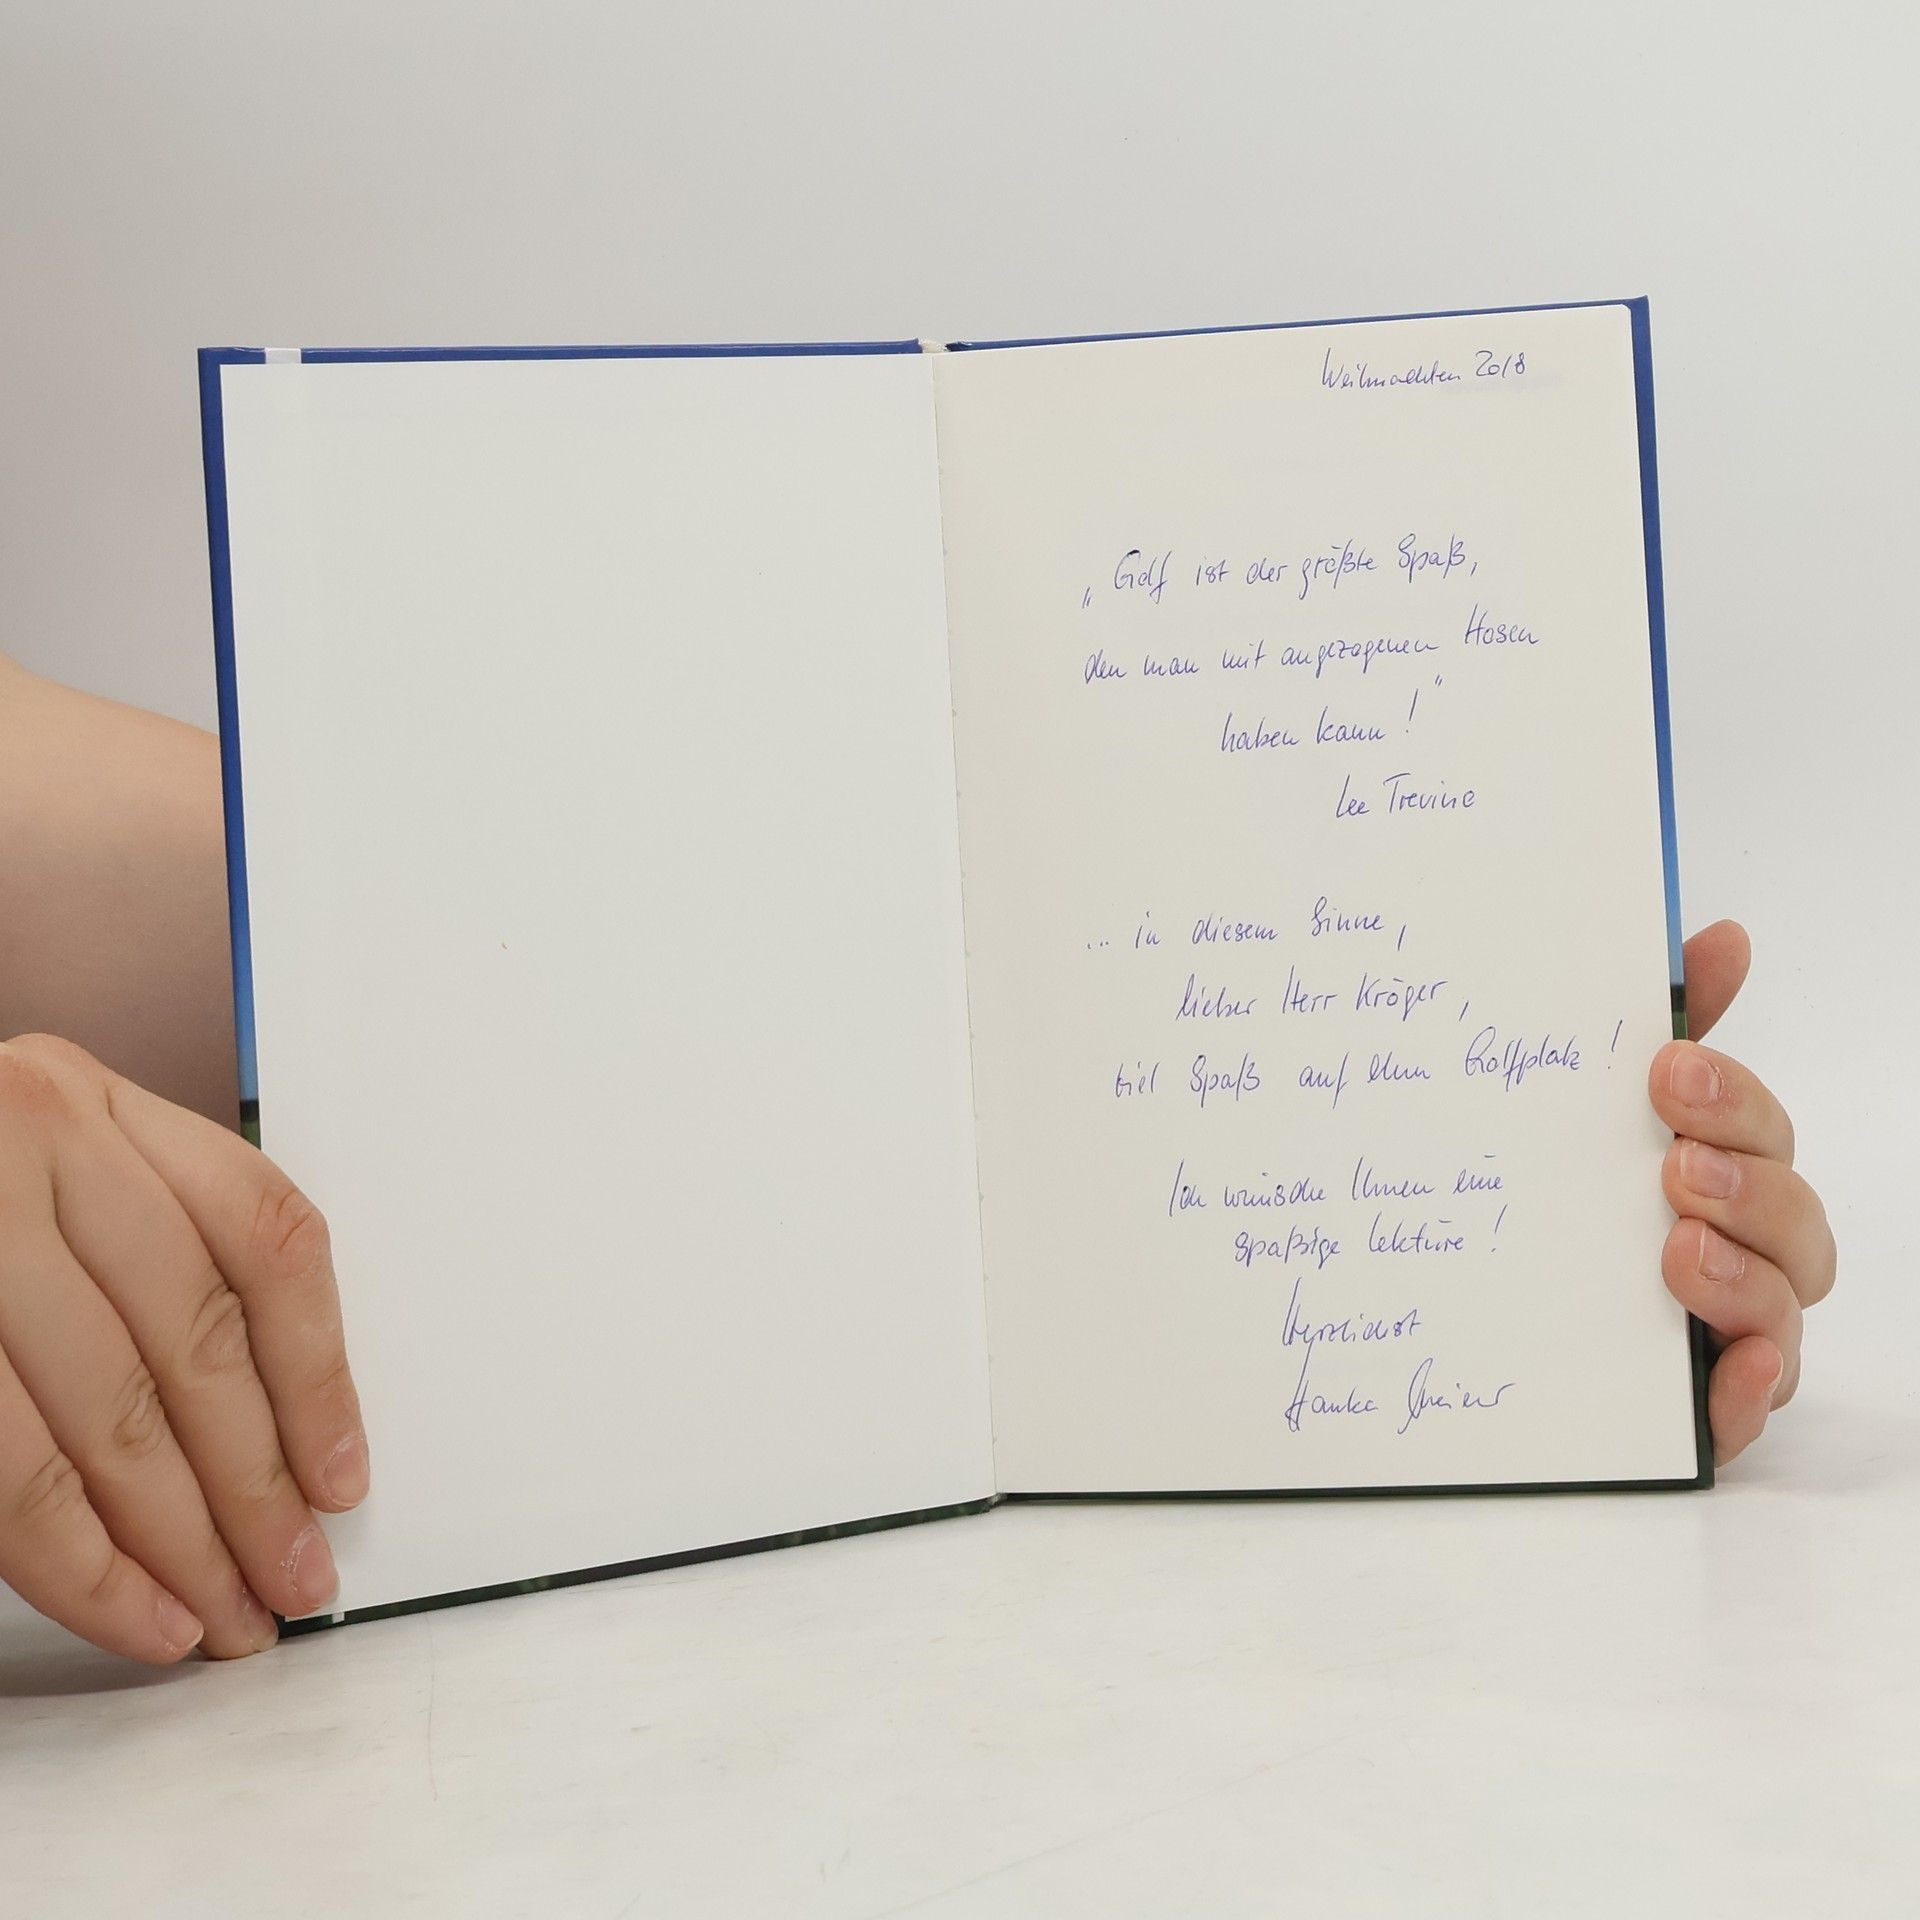 Weihnachten 2018
„Golf ist der größte Spaß,
den man mit angezogenen Hosen
haben kann!"
Lee Trevino
... in diesem Sinne,
lieber Herr Kröger,
viel Spaß auf dem Golfplatz!
Ich wünsche Ihnen eine
spaßige Lektüre!
Herzlichst
Hanka